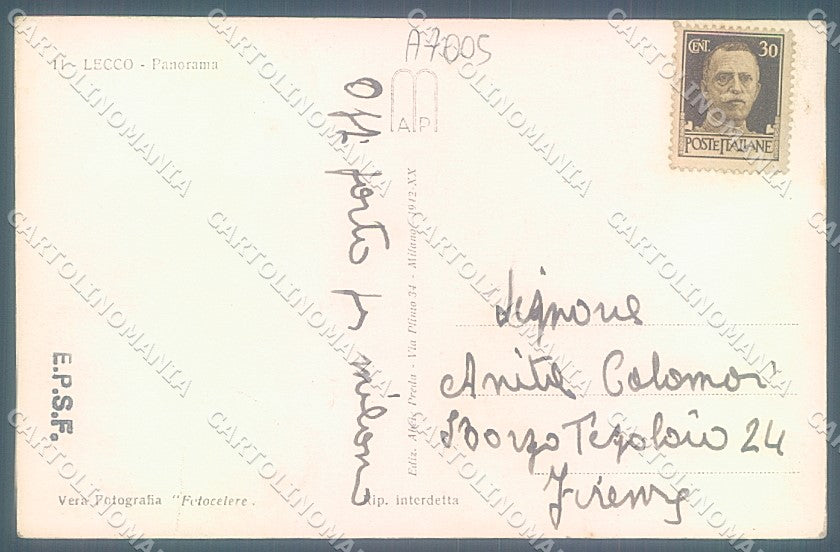 A7005
11 - LECCO - Panorama
CENT. 30
POSTE ITALIANE
A P
Ediz. Preda - Via Plinio 34 - Milano - 1942-XX
Signore
Anita Colomor
Borgo Tegolaio 24
Firenze
E.P.S.F.
Vera Fotografia "Fotocelere.
Rip. interdetta
CARTOLINOMANIA